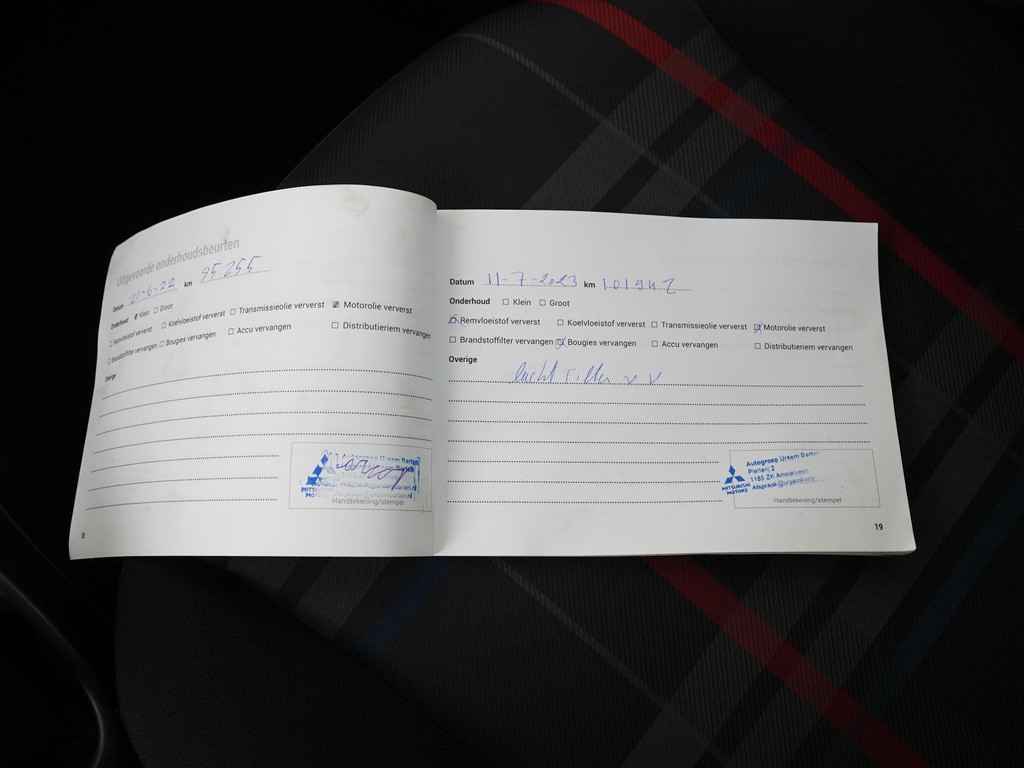 Uitgevoerde onderhoudsbeurten
Datum km 95255
Onderhoud Klein Groot
Remvloeistof ververst Koelvloeistof ververst Transmissieolie ververst Motorolie ververst
Brandstoffilter vervangen Bougies vervangen Accu vervangen Distributieriem vervangen
Overige
Handtekening/stempel
8
Datum 11-7-2023 km
Onderhoud Klein Groot
Remvloeistof ververst Koelvloeistof ververst Transmissieolie ververst Motorolie ververst
Brandstoffilter vervangen Bougies vervangen Accu vervangen Distributieriem vervangen
Overige
lucht Filter
Autogroep Ursem
MITSUBISHI
MOTORS
Handtekening/stempel
19